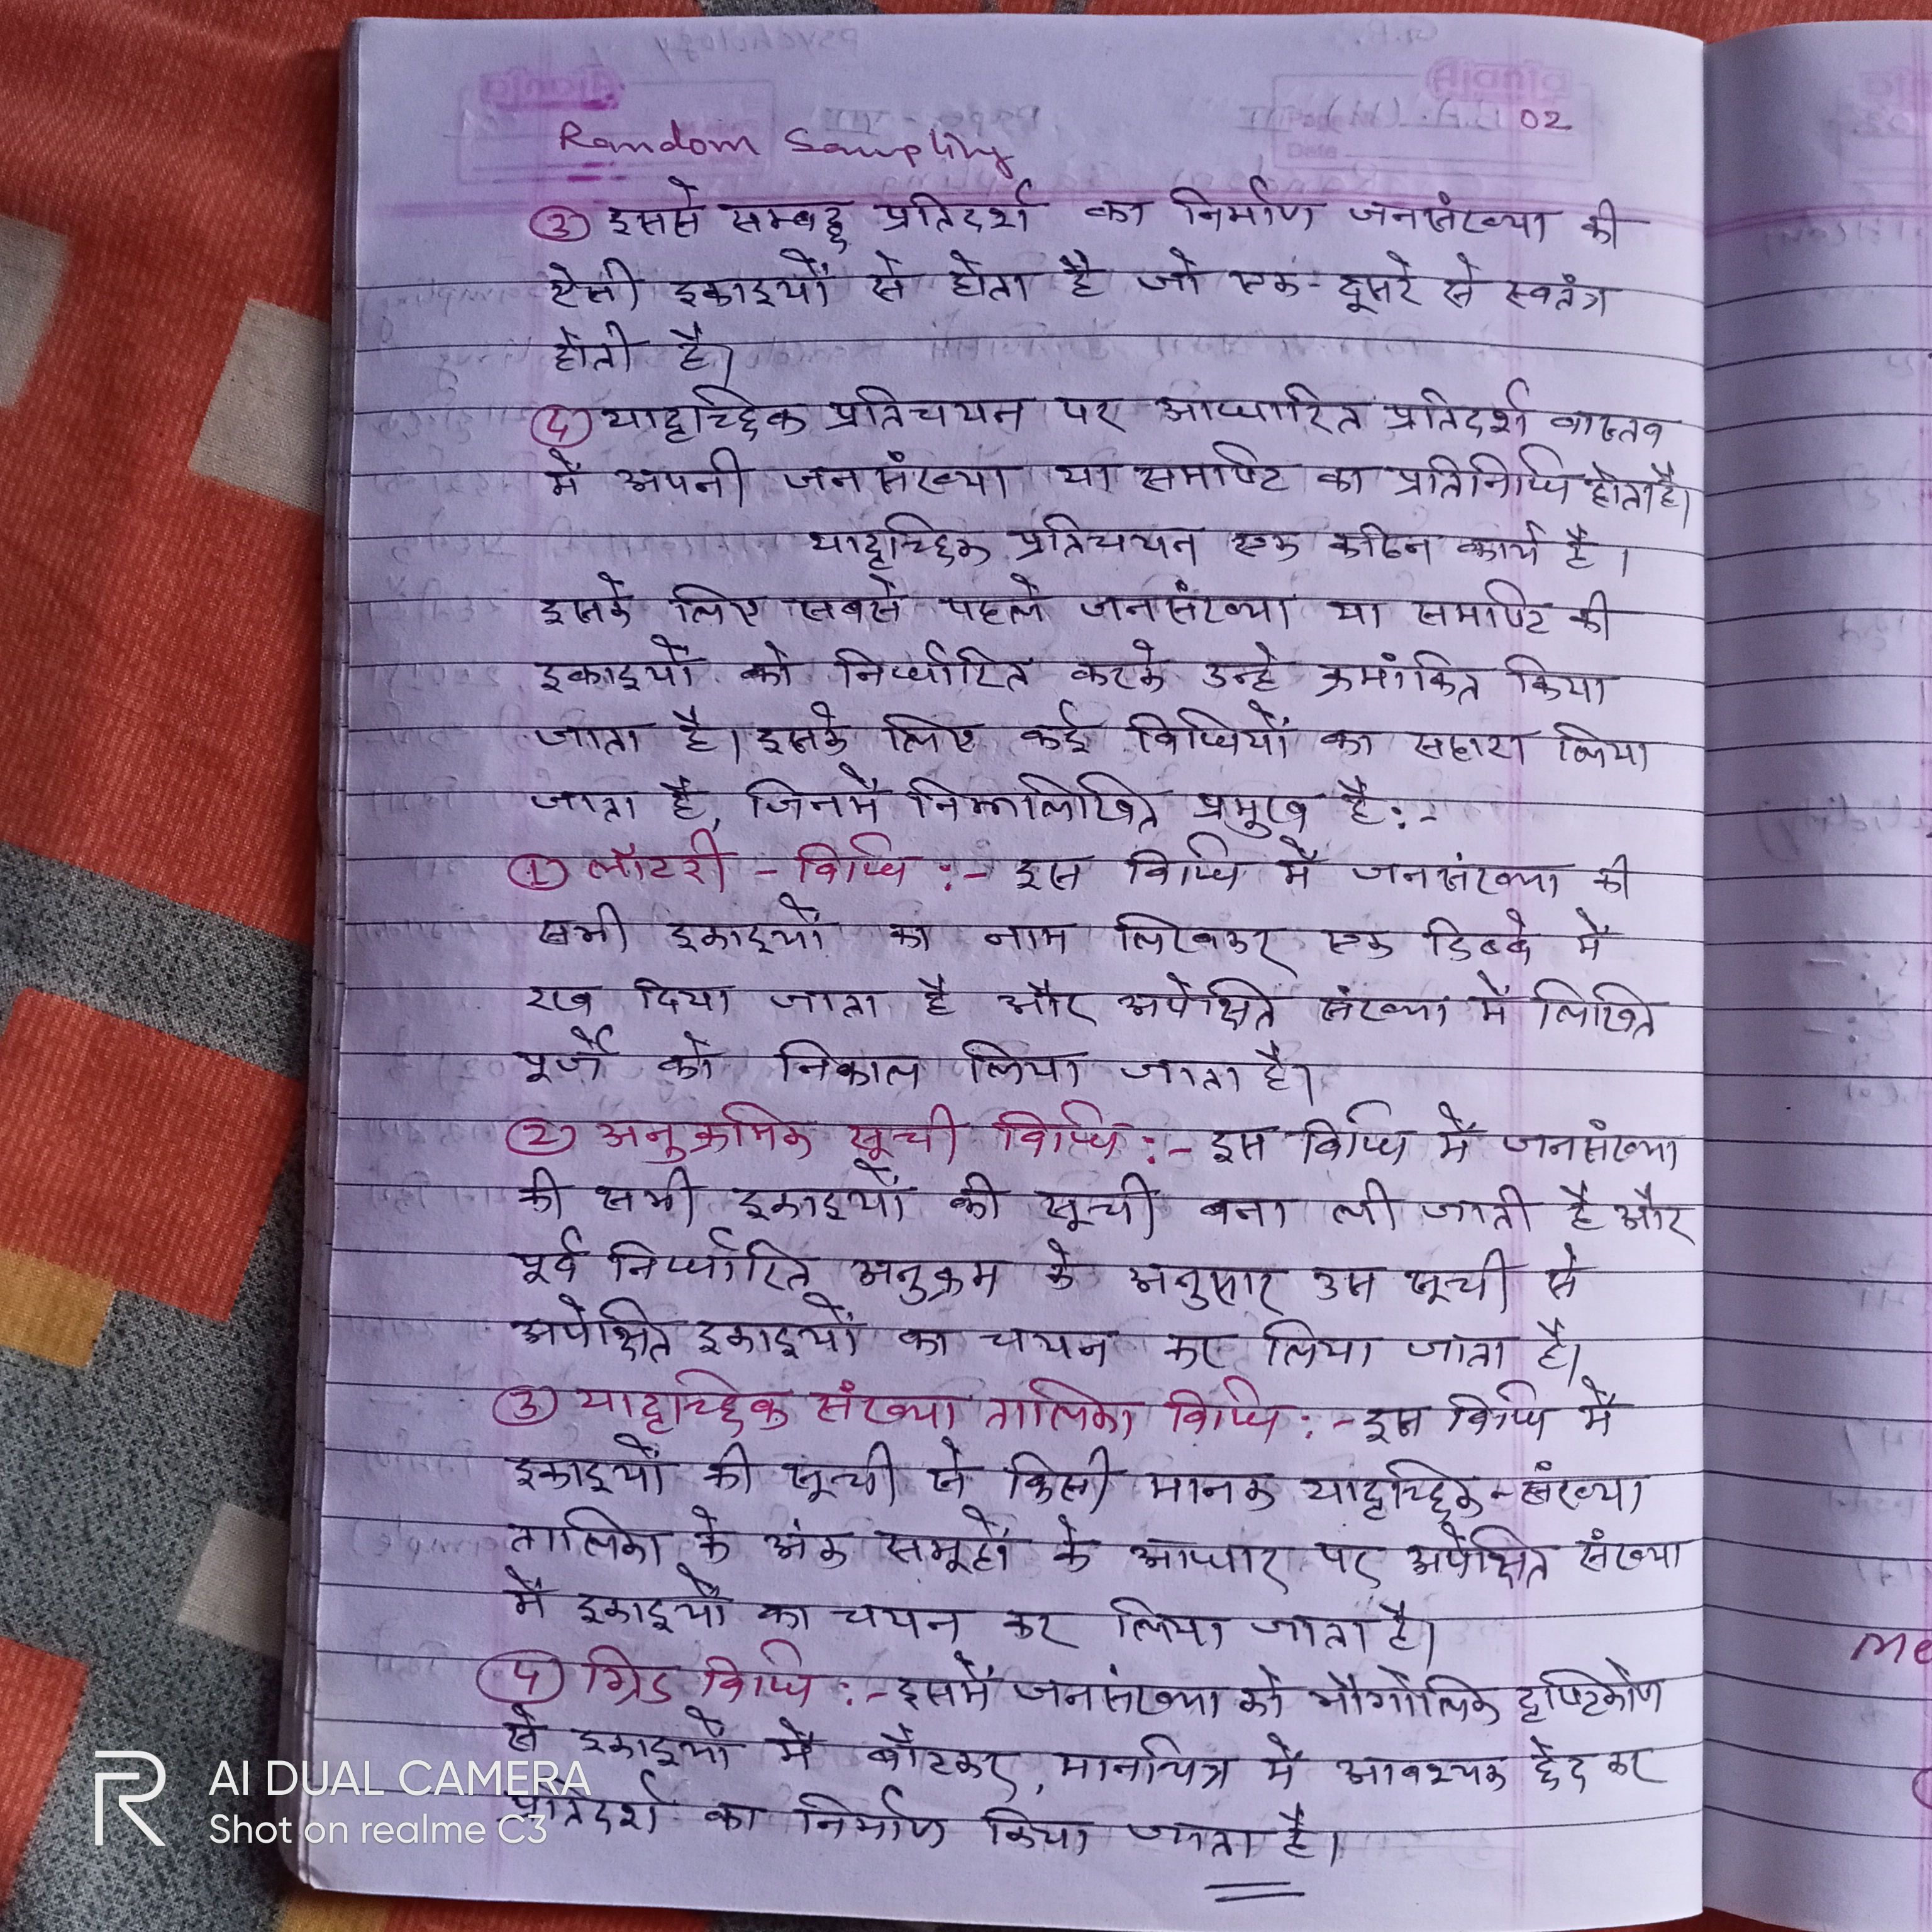 02
Random Sampling
③ इससे सम्बद्ध प्रतिदर्श का निर्माण जनसंख्या की
ऐसी इकाइयों से होता है जो एक-दूसरे से स्वतंत्र
होती है।
④ यादृच्छिक प्रतिचयन पर आधारित प्रतिदर्श वास्तव
में अपनी जनसंख्या या समष्टि का प्रतिनिधि होता है।
यादृच्छिक प्रतिचयन एक कठिन कार्य है।
इसके लिए सबसे पहले जनसंख्या या समष्टि की
इकाइयों को निर्धारित करके उन्हे क्रमांकित किया
जाता है। इसके लिए कई विधियों का सहारा लिया
जाता है, जिनमें निम्नलिखित प्रमुख है:-
① लॉटरी - विधि :- इस विधि में जनसंख्या की
सभी इकाइयों का नाम लिखकर एक डिब्बे में
रख दिया जाता है और अपेक्षित संख्या में लिखित
पूर्जे को निकाल लिया जाता है।
② अनुक्रमिक सूची विधि :- इस विधि में जनसंख्या
की सभी इकाइयों की सूची बना ली जाती है और
पूर्व निर्धारित अनुक्रम के अनुसार उस सूची से
अपेक्षित इकाइयों का चयन कर लिया जाता है।
③ यादृच्छिक संख्या तालिका विधि :- इस विधि में
इकाइयों की सूची से किसी मानक यादृच्छिक-संख्या
तालिका के अंक समूहों के आधार पर अपेक्षित संख्या
में इकाइयों का चयन कर लिया जाता है।
④ ग्रिड विधि :- इसमें जनसंख्या को भौगोलिक दृष्टिकोण
से इकाइयों में बाँटकर, मानचित्र में आवश्यक छेद कर
प्रतिदर्श का निर्माण किया जाता है।
AI DUAL CAMERA
Shot on realme C3